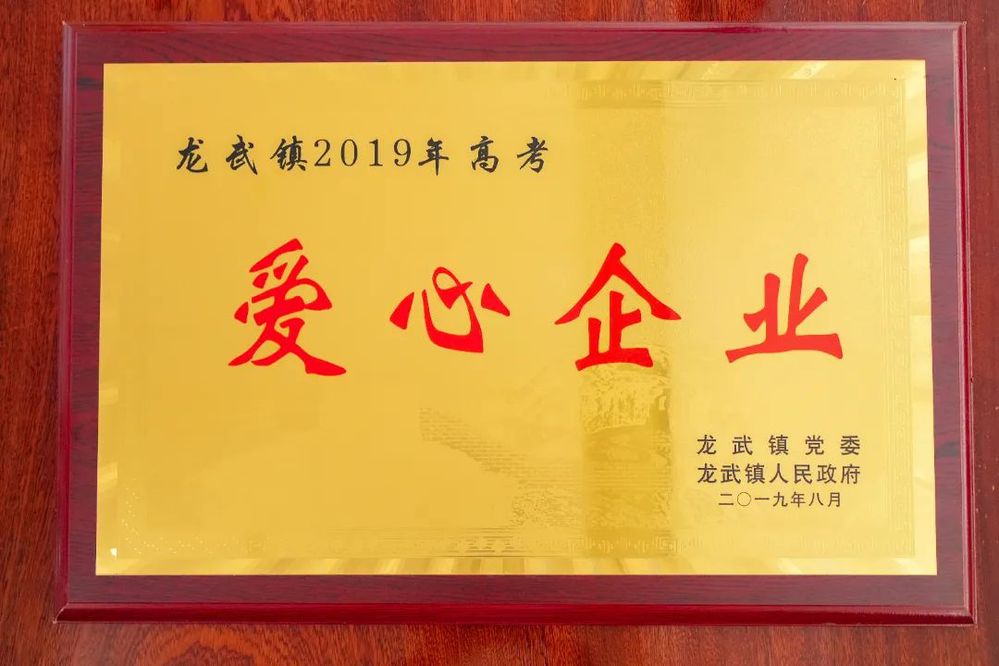 龙武镇2019年高考
爱心企业
龙武镇党委
龙武镇人民政府
二〇一九年八月